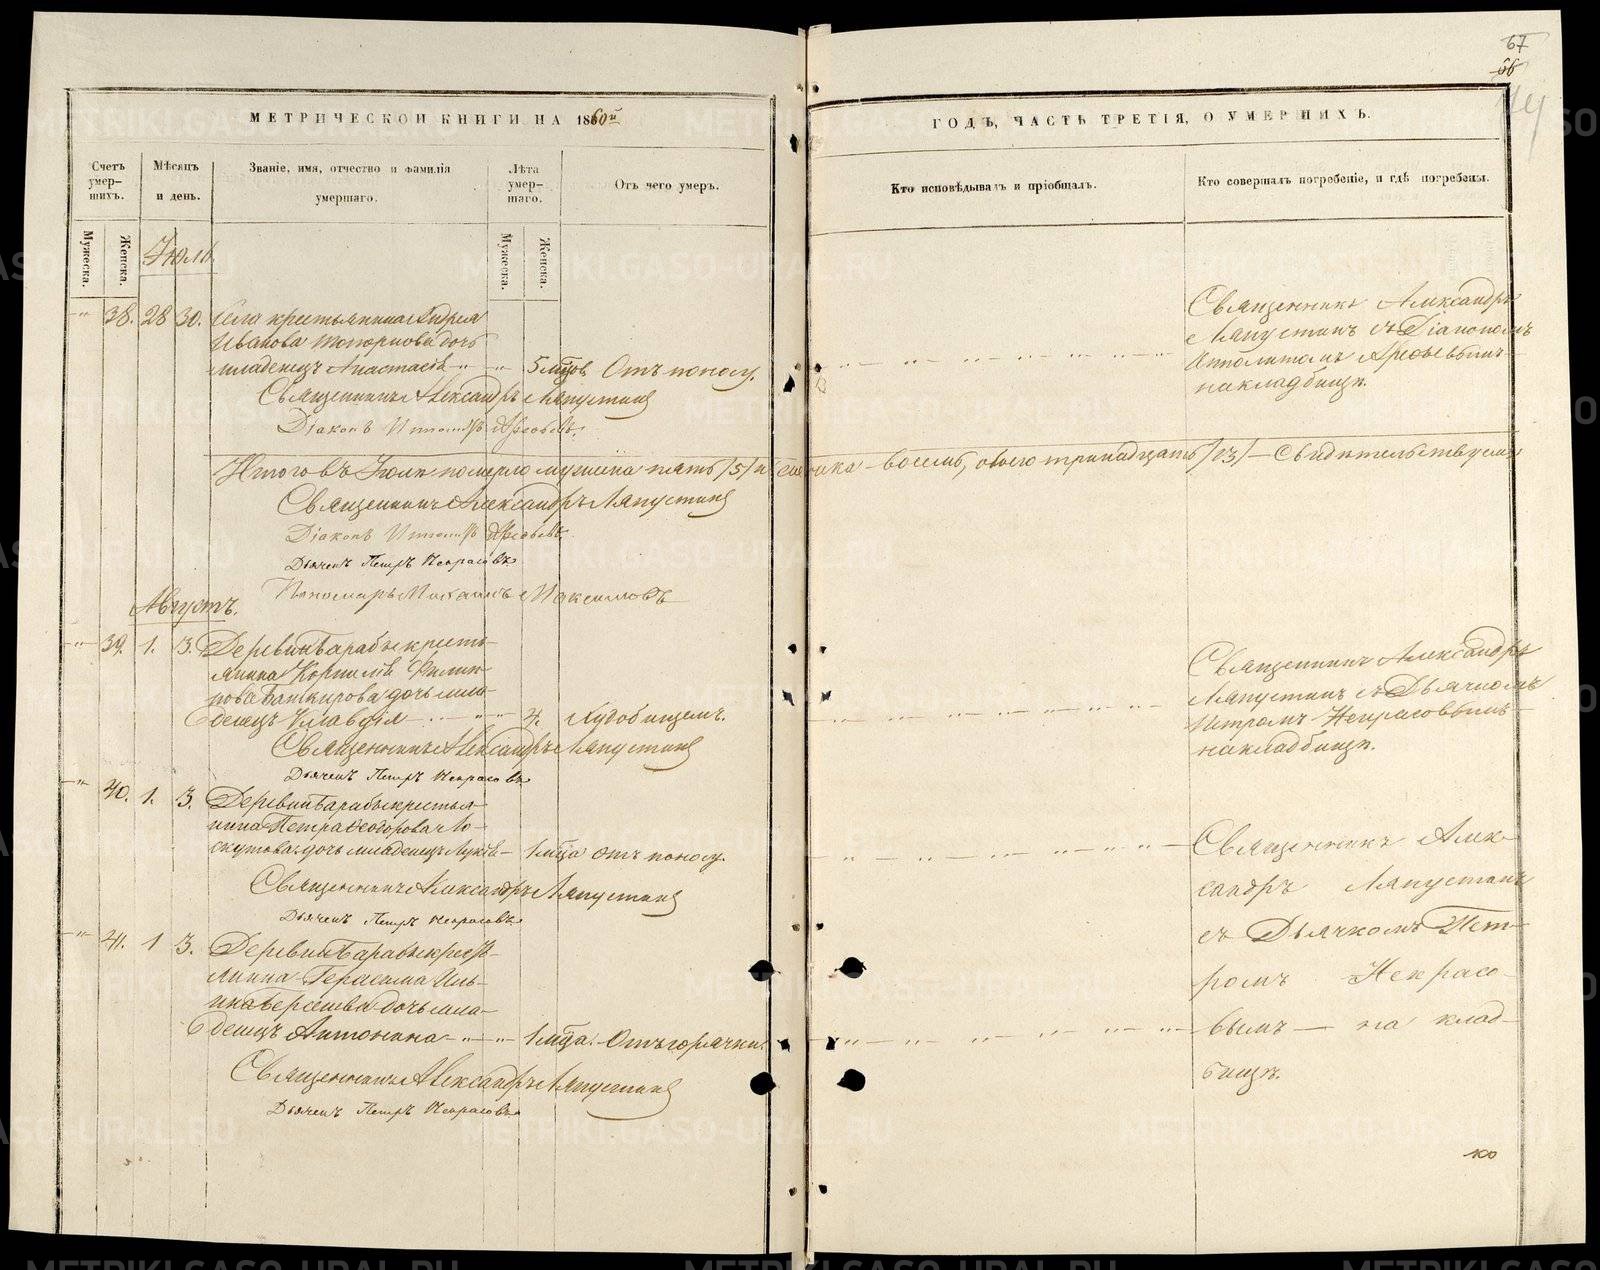 67
66
МЕТРИЧЕСКОЙ КНИГИ НА 1860й
ГОДЪ, ЧАСТЬ ТРЕТІЯ, О УМЕРШИХЪ.
Счетъ умер-шихъ.
Мѣсяцъ и день.
Званіе, имя, отчество и фамилія умершаго.
Лѣта умер-шаго.
Отъ чего умеръ.
Кто исповѣдывалъ и пріобщалъ.
Кто совершалъ погребеніе, и гдѣ погребены.
Мужеска.
Женска.
Мужеска.
Женска.
Іюль
38. 28 30. Села крестьянина Андрея
Иванова дочь
младенецъ Анастасія 5 мцовъ Отъ поносу.
Священникъ Александръ
Ляпустинъ съ Діакономъ
Ипполитомъ
на кладбищѣ.
Священникъ Александръ Ляпустинъ
Діаконъ
Итого въ Іюлѣ померло мужеска пять /5/ и женска восемь, обоего тринадцать /13/ Свидѣтельствуемъ
Священникъ Александръ Ляпустинъ
Діаконъ
Дьячекъ Петръ Некрасовъ
Пономарь Михаилъ Максимовъ
Августъ.
39. 1. 3. Деревни Барабы кресть-
янина Корнилія Филип-
пова Башкирова дочь мла-
денецъ Клавдія 4. Худобищемъ.
Священникъ Александръ
Ляпустинъ съ Дьячкомъ
Петромъ Некрасовымъ
на кладбищѣ.
Священникъ Александръ Ляпустинъ
Дьячекъ Петръ Некрасовъ
40. 1. 3. Деревни Барабы крестья-
нина Петра Ѳеодорова Ло-
скутова дочь младенецъ 1 мца отъ поносу.
Священникъ Александръ Ляпустинъ
Дьячекъ Петръ Некрасовъ
41. 1 3. Деревни Барабы кресть-
янина Герасима Иль-
ина дочь мла-
денецъ Антонина 1 мца. Отъ горячки.
Священникъ Алек-
сандръ Ляпустинъ
съ Дьячкомъ Пет-
ромъ Некрасо-
вымъ на клад-
бищѣ.
Священникъ Александръ Ляпустинъ
Дьячекъ Петръ Некрасовъ
METRIKI.GASO-URAL.RU